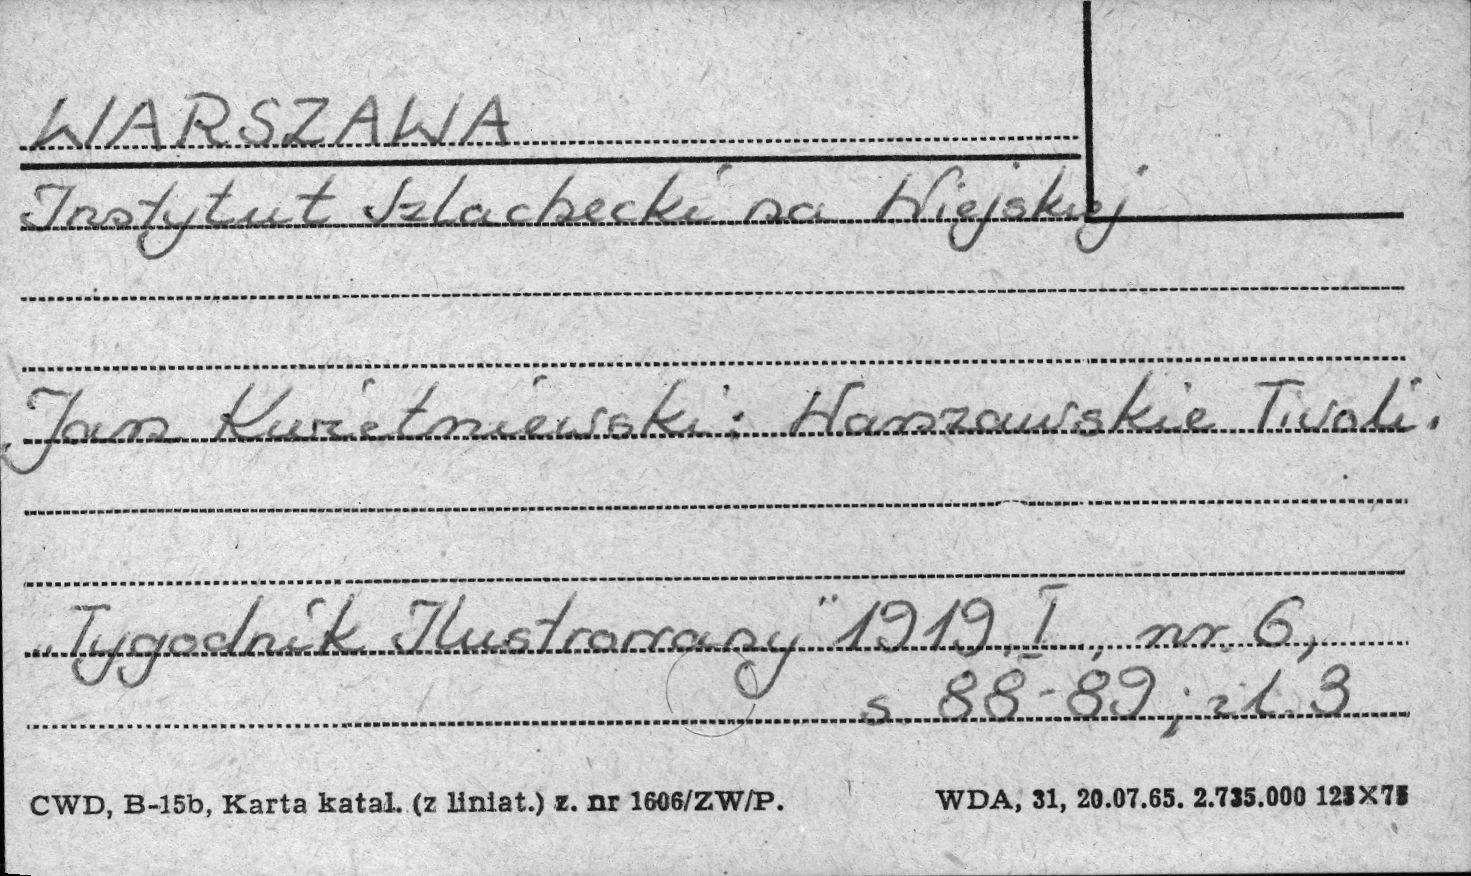 WARSZAWA
Instytut Szlachecki na Wiejskiej
Jan Kwietniewski: Warszawskie Tivoli.
„Tygodnik Ilustrowany" 1919, I, nr 6,
s. 88-89; il. 3
CWD, B-15b, Karta katal. (z liniat.) z. nr 1606/ZW/P.
WDA, 31, 20.07.65. 2.735.000 125×75